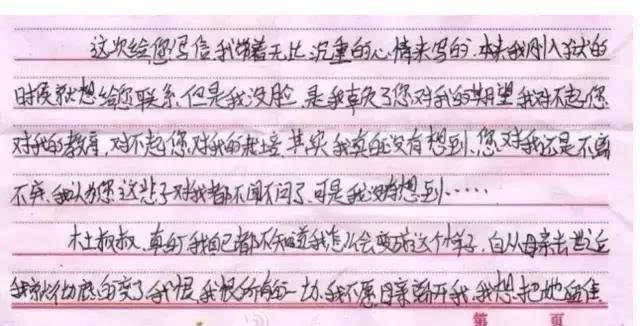 这次给您写信我带着无比沉重的心情来写的，本来我刚入狱的
时候就想给您联系，但是我没脸，是我辜负了您对我的期望我对不起您
对我的教育，对不起您对我的栽培，其实我真的没有想到，您对我还是不离
不弃，我认为您这辈子对我都不闻不问了，可是我没有想到……
木土叔叔，真的我自己都不知道我怎么会变成这个样子，自从母亲去世后
我就彻底的变了我恨，我恨所有的一切，我不愿母亲离开我，我想把她留住
第 页